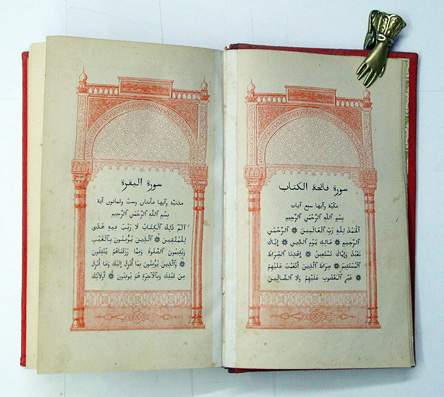 سورة فاتحة الكتاب
مكيّة وآيها سبع آيات
بِسْمِ اللّٰهِ الرَّحْمٰنِ الرَّحِيمِ
اَلْحَمْدُ لِلّٰهِ رَبِّ الْعَالَمِينَ ۞ الرَّحْمٰنِ
الرَّحِيمِ ۞ مَالِكِ يَوْمِ الدِّينِ ۞ إِيَّاكَ
نَعْبُدُ وَإِيَّاكَ نَسْتَعِينُ ۞ إِهْدِنَا الصِّرَاطَ
الْمُسْتَقِيمَ ۞ صِرَاطَ الَّذِينَ أَنْعَمْتَ عَلَيْهِمْ
۞ غَيْرِ الْمَغْضُوبِ عَلَيْهِمْ وَلَا الضَّالِّينَ
سورة البقرة
مدنيّة وآيها مائتان وستّ وثمانون آية
بِسْمِ اللّٰهِ الرَّحْمٰنِ الرَّحِيمِ
الٓمٓ ذٰلِكَ الْكِتَابُ لَا رَيْبَ فِيهِ هُدًى
لِلْمُتَّقِينَ ۞ الَّذِينَ يُؤْمِنُونَ بِالْغَيْبِ
وَيُقِيمُونَ الصَّلٰوةَ وَمِمَّا رَزَقْنَاهُمْ يُنْفِقُونَ
۞ وَالَّذِينَ يُؤْمِنُونَ بِمَا أُنْزِلَ إِلَيْكَ وَمَا أُنْزِلَ
مِنْ قَبْلِكَ وَبِالْآخِرَةِ هُمْ يُوقِنُونَ ۞ أُولَائِكَ